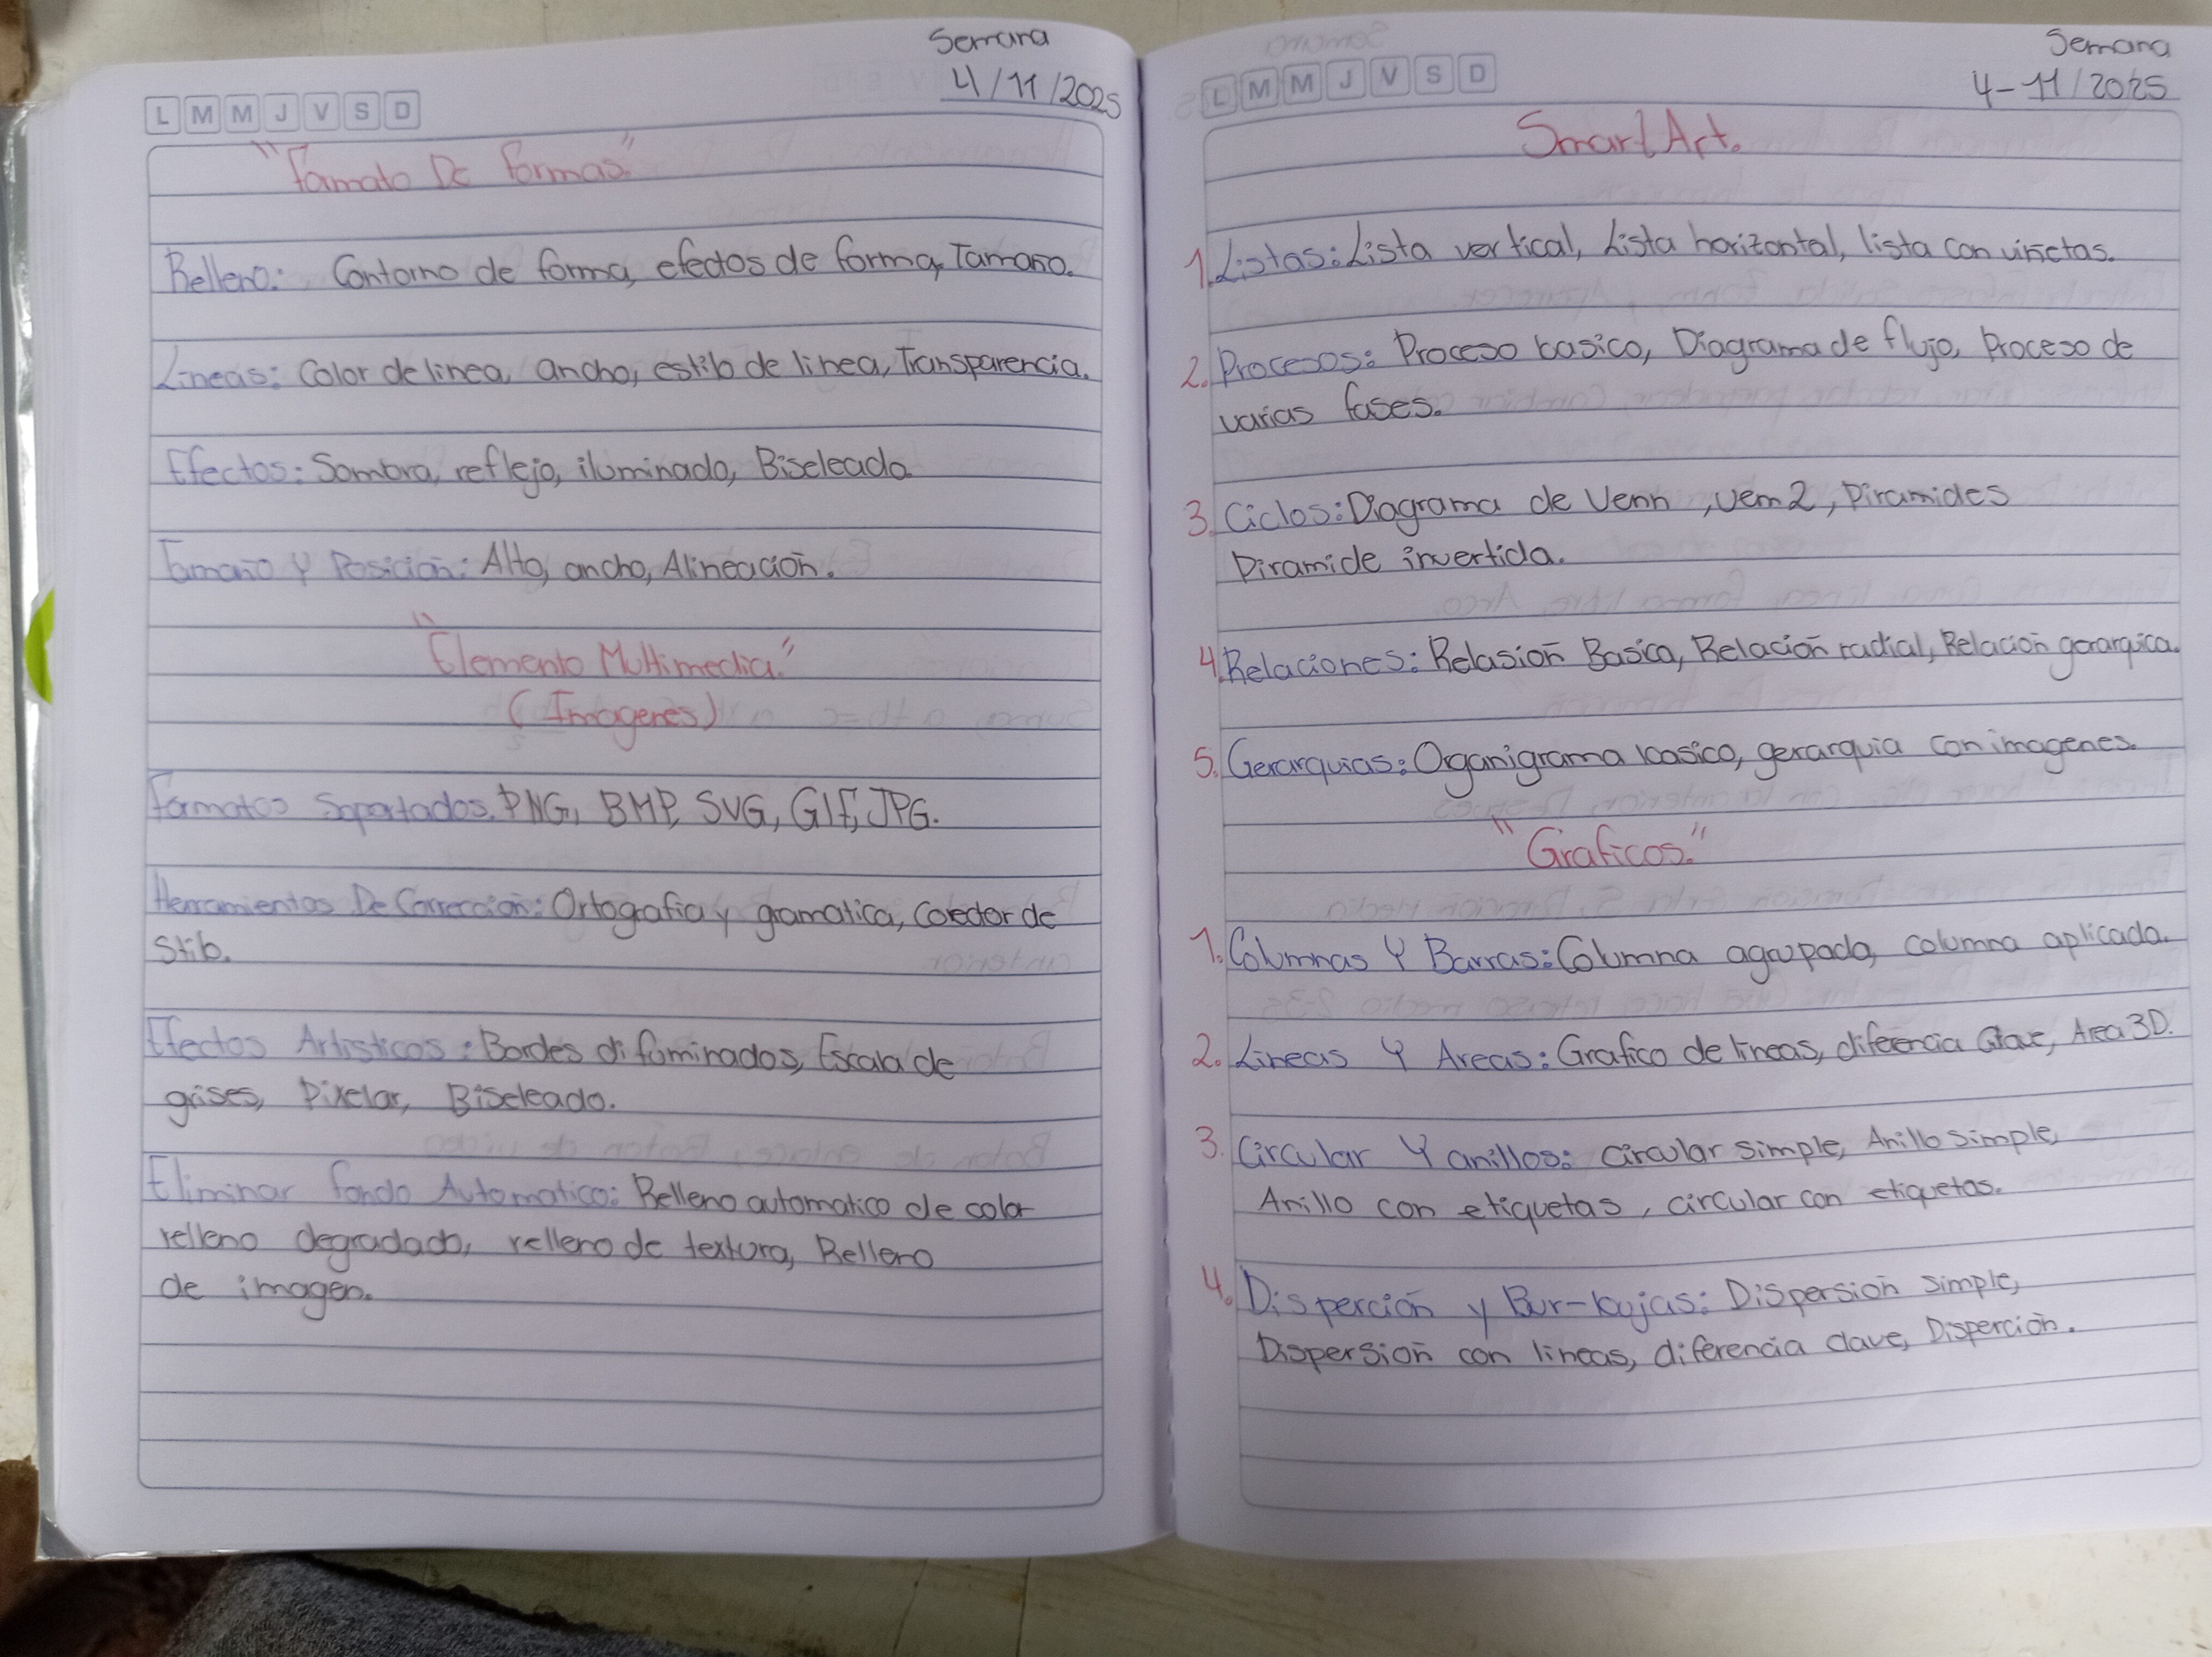 Semana
4/11/2025
L M M J V S D
"Formato De formas"
Relleno: Contorno de forma, efectos de forma, Tamaño.
Lineas: Color de linea, ancho, estilo de linea, Transparencia.
Efectos: Sombra, reflejo, iluminado, Biseleado
Tamaño Y Posición: Alto, ancho, Alineación.
"Elemento Multimedia."
(Imagenes)
Formatos Soportados. PNG, BMP, SVG, GIF, JPG.
Herramientas De Corrección: Ortografia y gramatica, Coredor de
Stilo.
Efectos Artisticos: Bordes difuminados, Escala de
grises, Pixelar, Biseleado.
Eliminar fondo Automatico: Relleno automatico de color
relleno degradado, relleno de textura, Relleno
de imagen.
Semana
4-11/2025
L M M J V S D
SmartArt.
1. Listas: Lista vertical, Lista horizontal, lista con viñetas.
2. Procesos: Proceso basico, Diagrama de flujo, Proceso de
varias fases.
3. Ciclos: Diagrama de Venn, Vem 2, Piramides
Piramide invertida.
4. Relaciones: Relasión Basica, Relación radial, Relación gerarquica.
5. Gerarquias: Organigrama basico, gerarquia con imagenes.
"Graficos."
1. Columnas Y Barras: Columna agrupada, columna aplicada.
2. Lineas Y Areas: Grafico de lineas, diferencia Clave, Area 3D.
3. Circular Y anillos: circular simple, Anillo simple,
Anillo con etiquetas, circular con etiquetas.
4. Disperción y Bur-bujas: Dispersión simple,
Dispersión con lineas, diferencia clave, Disperción.